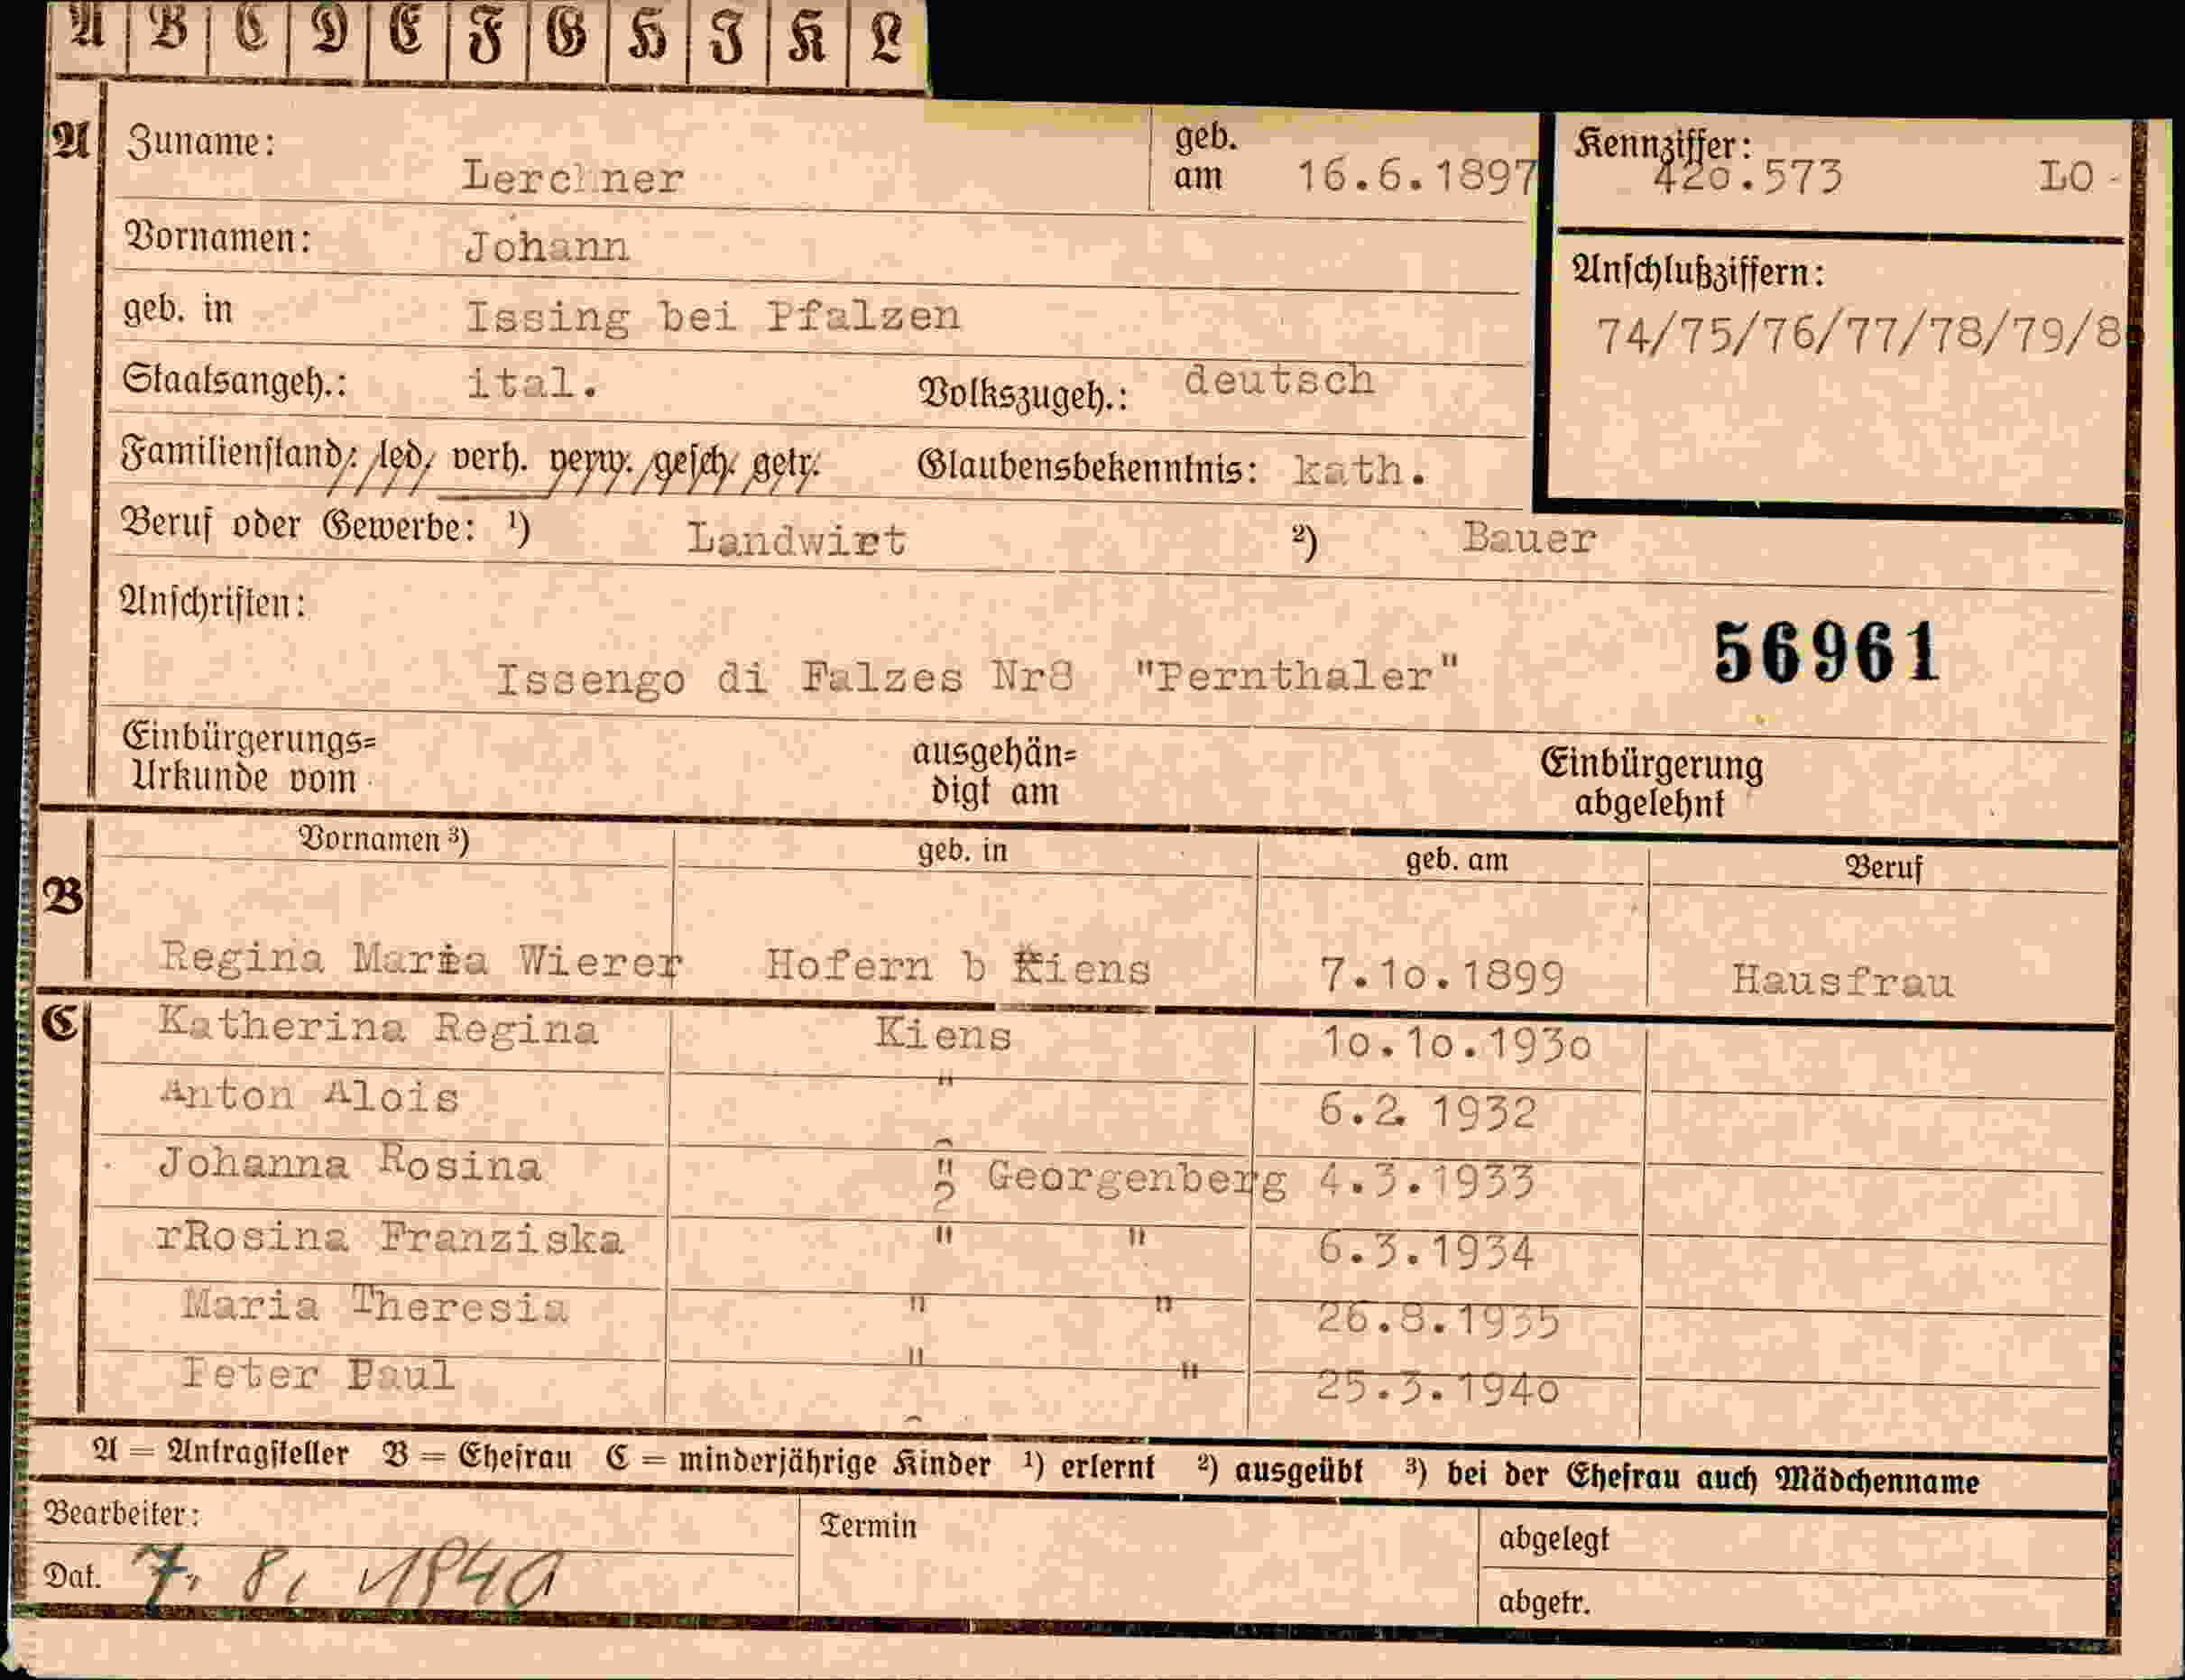 A B C D E F G H I K L
A Zuname: Lerchner geb. am 16.6.1897 Kennziffer: 420.573 LO-
Vornamen: Johann
geb. in Issing bei Pfalzen
Anschlußziffern:
74/75/76/77/78/79/8
Staatsangeh.: ital. Volkszugeh.: deutsch
Familienstand: led. verh. verw. gesch. getr. Glaubensbekenntnis: kath.
Beruf oder Gewerbe: 1) Landwirt 2) Bauer
Anschriften:
56961
Issengo di Falzes Nr8 "Pernthaler"
Einbürgerungs= ausgehän= Einbürgerung
Urkunde vom digt am abgelehnt
Vornamen 3) geb. in geb. am Beruf
B
Regina Maria Wierer Hofern b Kiens 7.10.1899 Hausfrau
C Katherina Regina Kiens 10.10.1930
Anton Alois " 6.2. 1932
Johanna Rosina " Georgenberg 4.3.1933
rRosina Franziska " " 6.3.1934
Maria Theresia " " 26.8.1935
Peter Paul " " 25.3.1940
A = Antragsteller B = Ehefrau C = minderjährige Kinder 1) erlernt 2) ausgeübt 3) bei der Ehefrau auch Mädchenname
Bearbeiter: Termin abgelegt
Dat. 7. 8. 1940 abgetr.